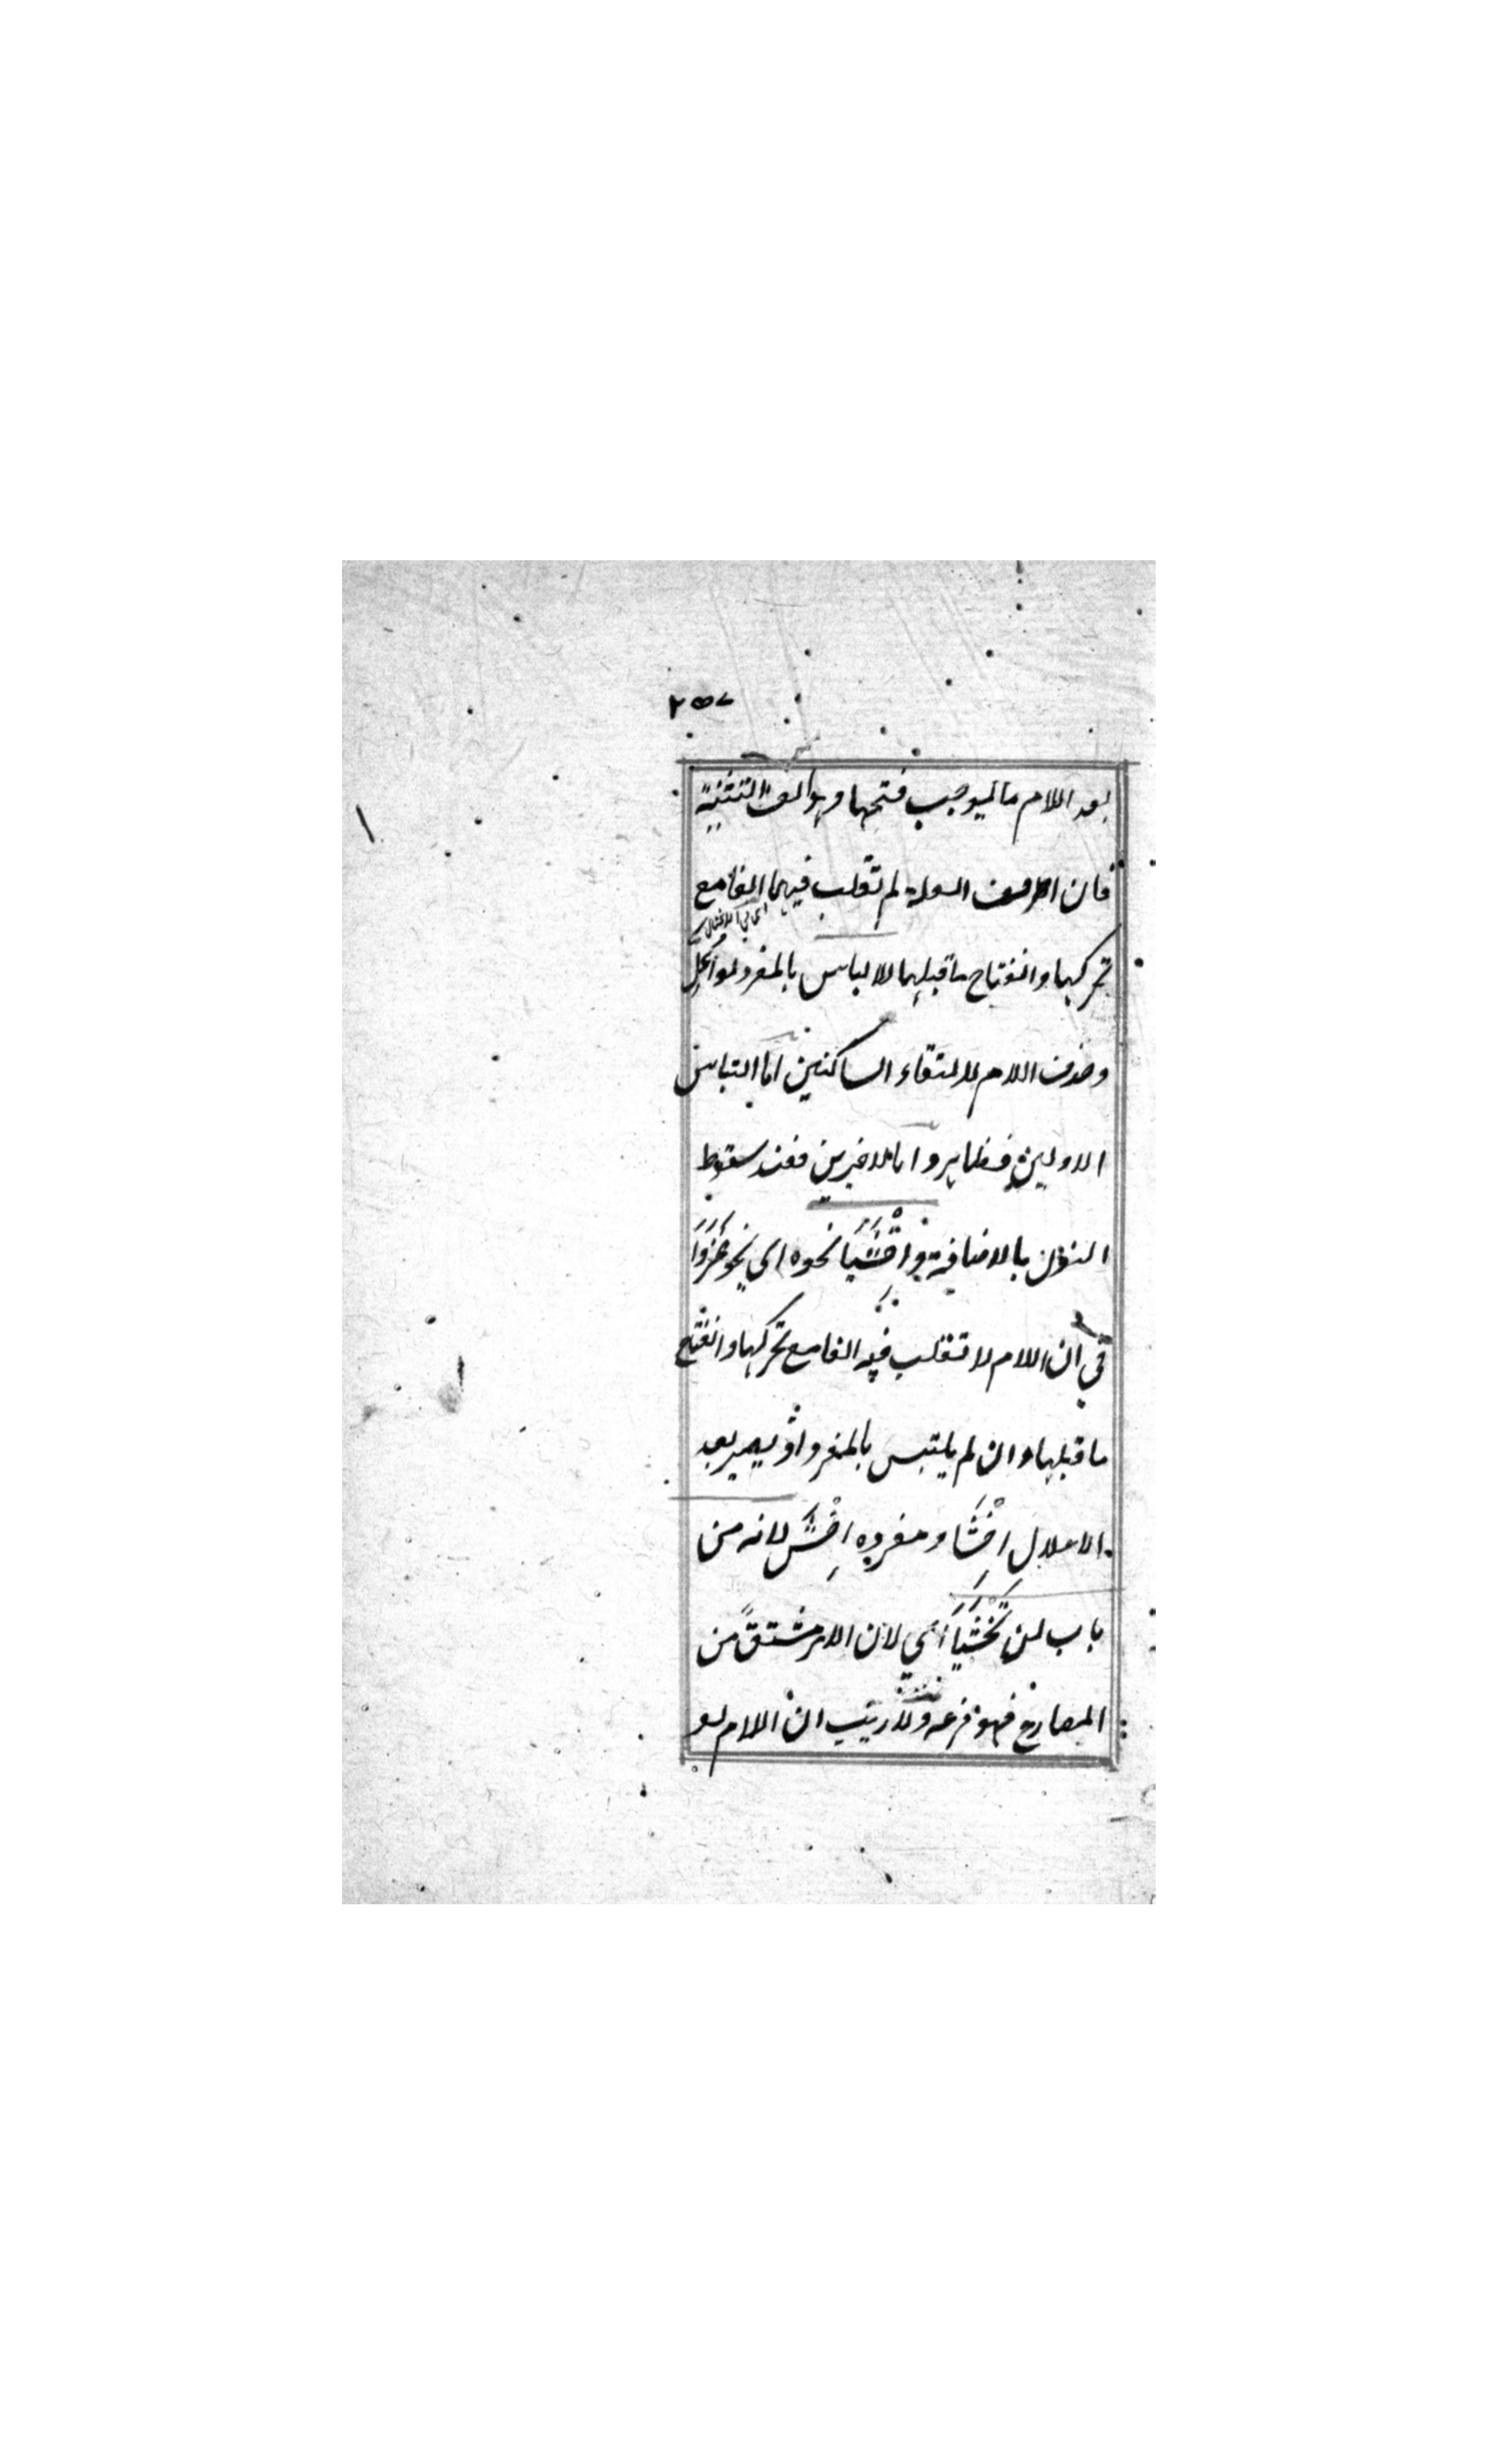 ٢٥٧
بعد اللام ما ليوجب فتحها وهو الف التثنية
فان احرف العلة لم تقلب فيهما الفا مع
تحركها وانفتاح ما قبلها للالباس بالمفرد لو اعل
وحذف اللام لالتقاء الساكنين اما التباس
الاولين فظاهر واما الاخيرين فعند سقوط
النون بالاضافة واخْشَيَا نحوه اي نحو غَزَوَا
في ان اللام لا تقلب فيه الفا مع تحركها وانفتاح
ما قبلها وان لم يلتبس بالمفرد اذ يصير بعد
الاعلال اِخْشَا ومفرده اِخْشَ لانه من
باب لن تَخْشَيَا اي لان الامر مشتق من
المضارع فهو فرعه ولا ريب ان اللام لو